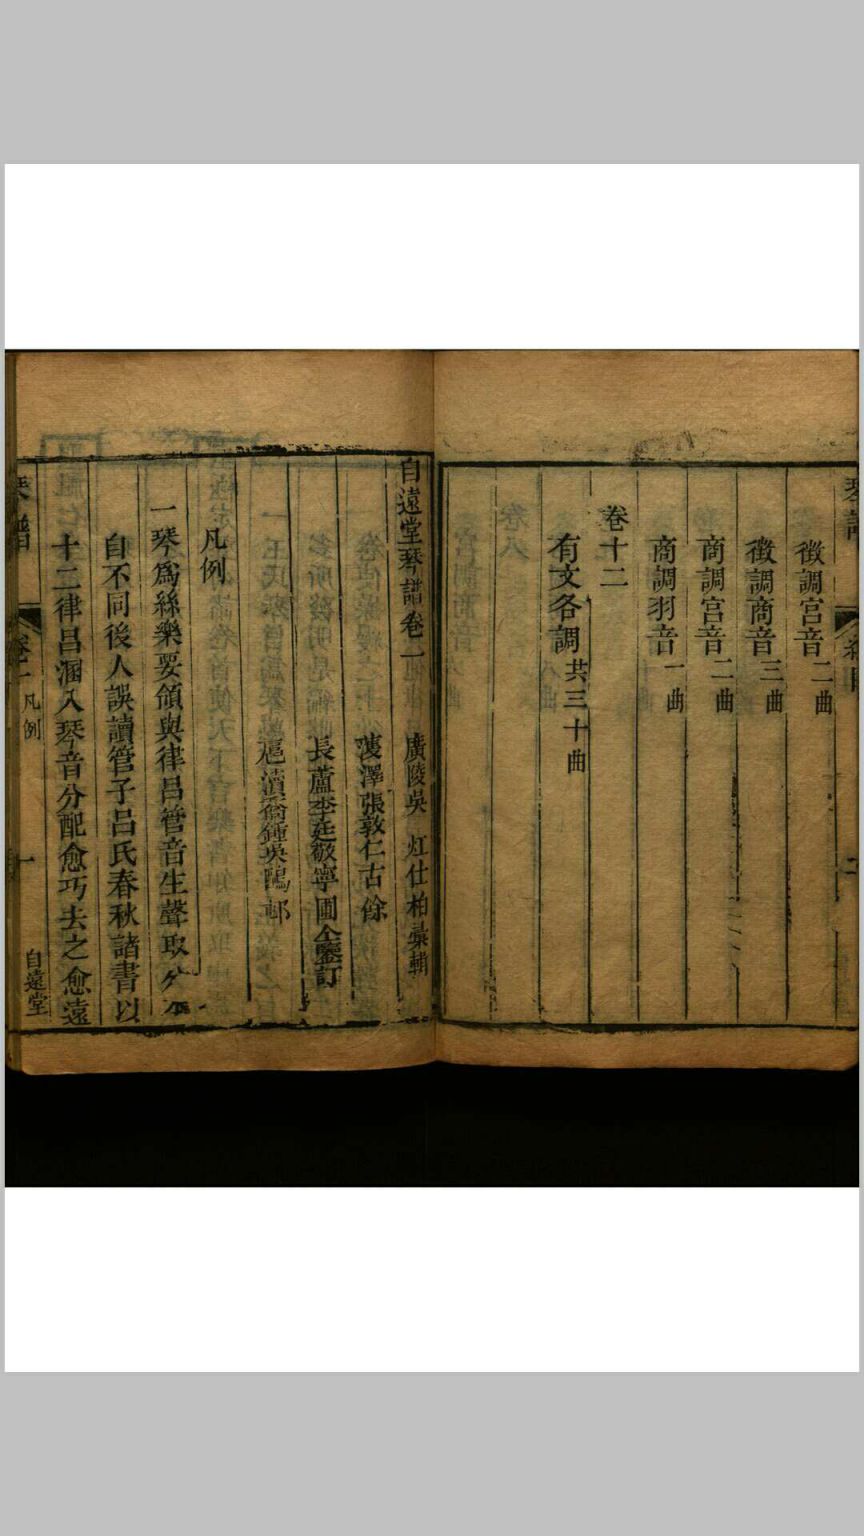 徵調宮音二曲
徵調商音三曲
商調宮音二曲
商調羽音一曲
卷十二
有文各調共三十曲
自遠堂琴譜卷一 廣陵吳 灴仕柏彚輯
濩澤張敦仁古餘
長蘆李廷敬寧圃仝鑒訂
凡例
一琴爲絲樂要領與律呂管音生聲取分不
自不同後人誤讀管子呂氏春秋諸書以
十二律呂溷入琴音分配愈巧去之愈遠
琴譜 卷一 凡例 一 自遠堂